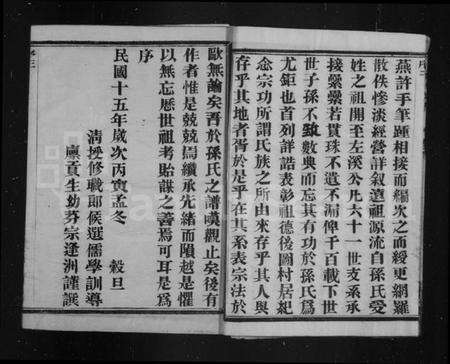 燕許手筆踵相接而編次之而綬更網羅
散佚慘淡經營詳叙遷祖源流自孫氏受
姓之祖開至左溪公凡六十一世支系承
接纍纍若貫珠不遺不漏俾千百載下世
世子孫不致數典而忘其有功於孫氏爲
尤鉅也首列詳誥表彰祖德後圖村居紀
念宗功所謂氏族之所由來存乎其人與
存乎其地者胥於是乎在其系表宗法於
歐無論矣吾於孫氏之譜嘆觀止矣後有
作者惟是兢兢焉纘承先緒而隕越是懼
以無忘歷世祖考貽謀之善焉可耳是爲
序
民國十五年歲次丙寅孟冬 穀旦
清授修職郎候選儒學訓導
廪貢生幼芬宗逢洲謹譔